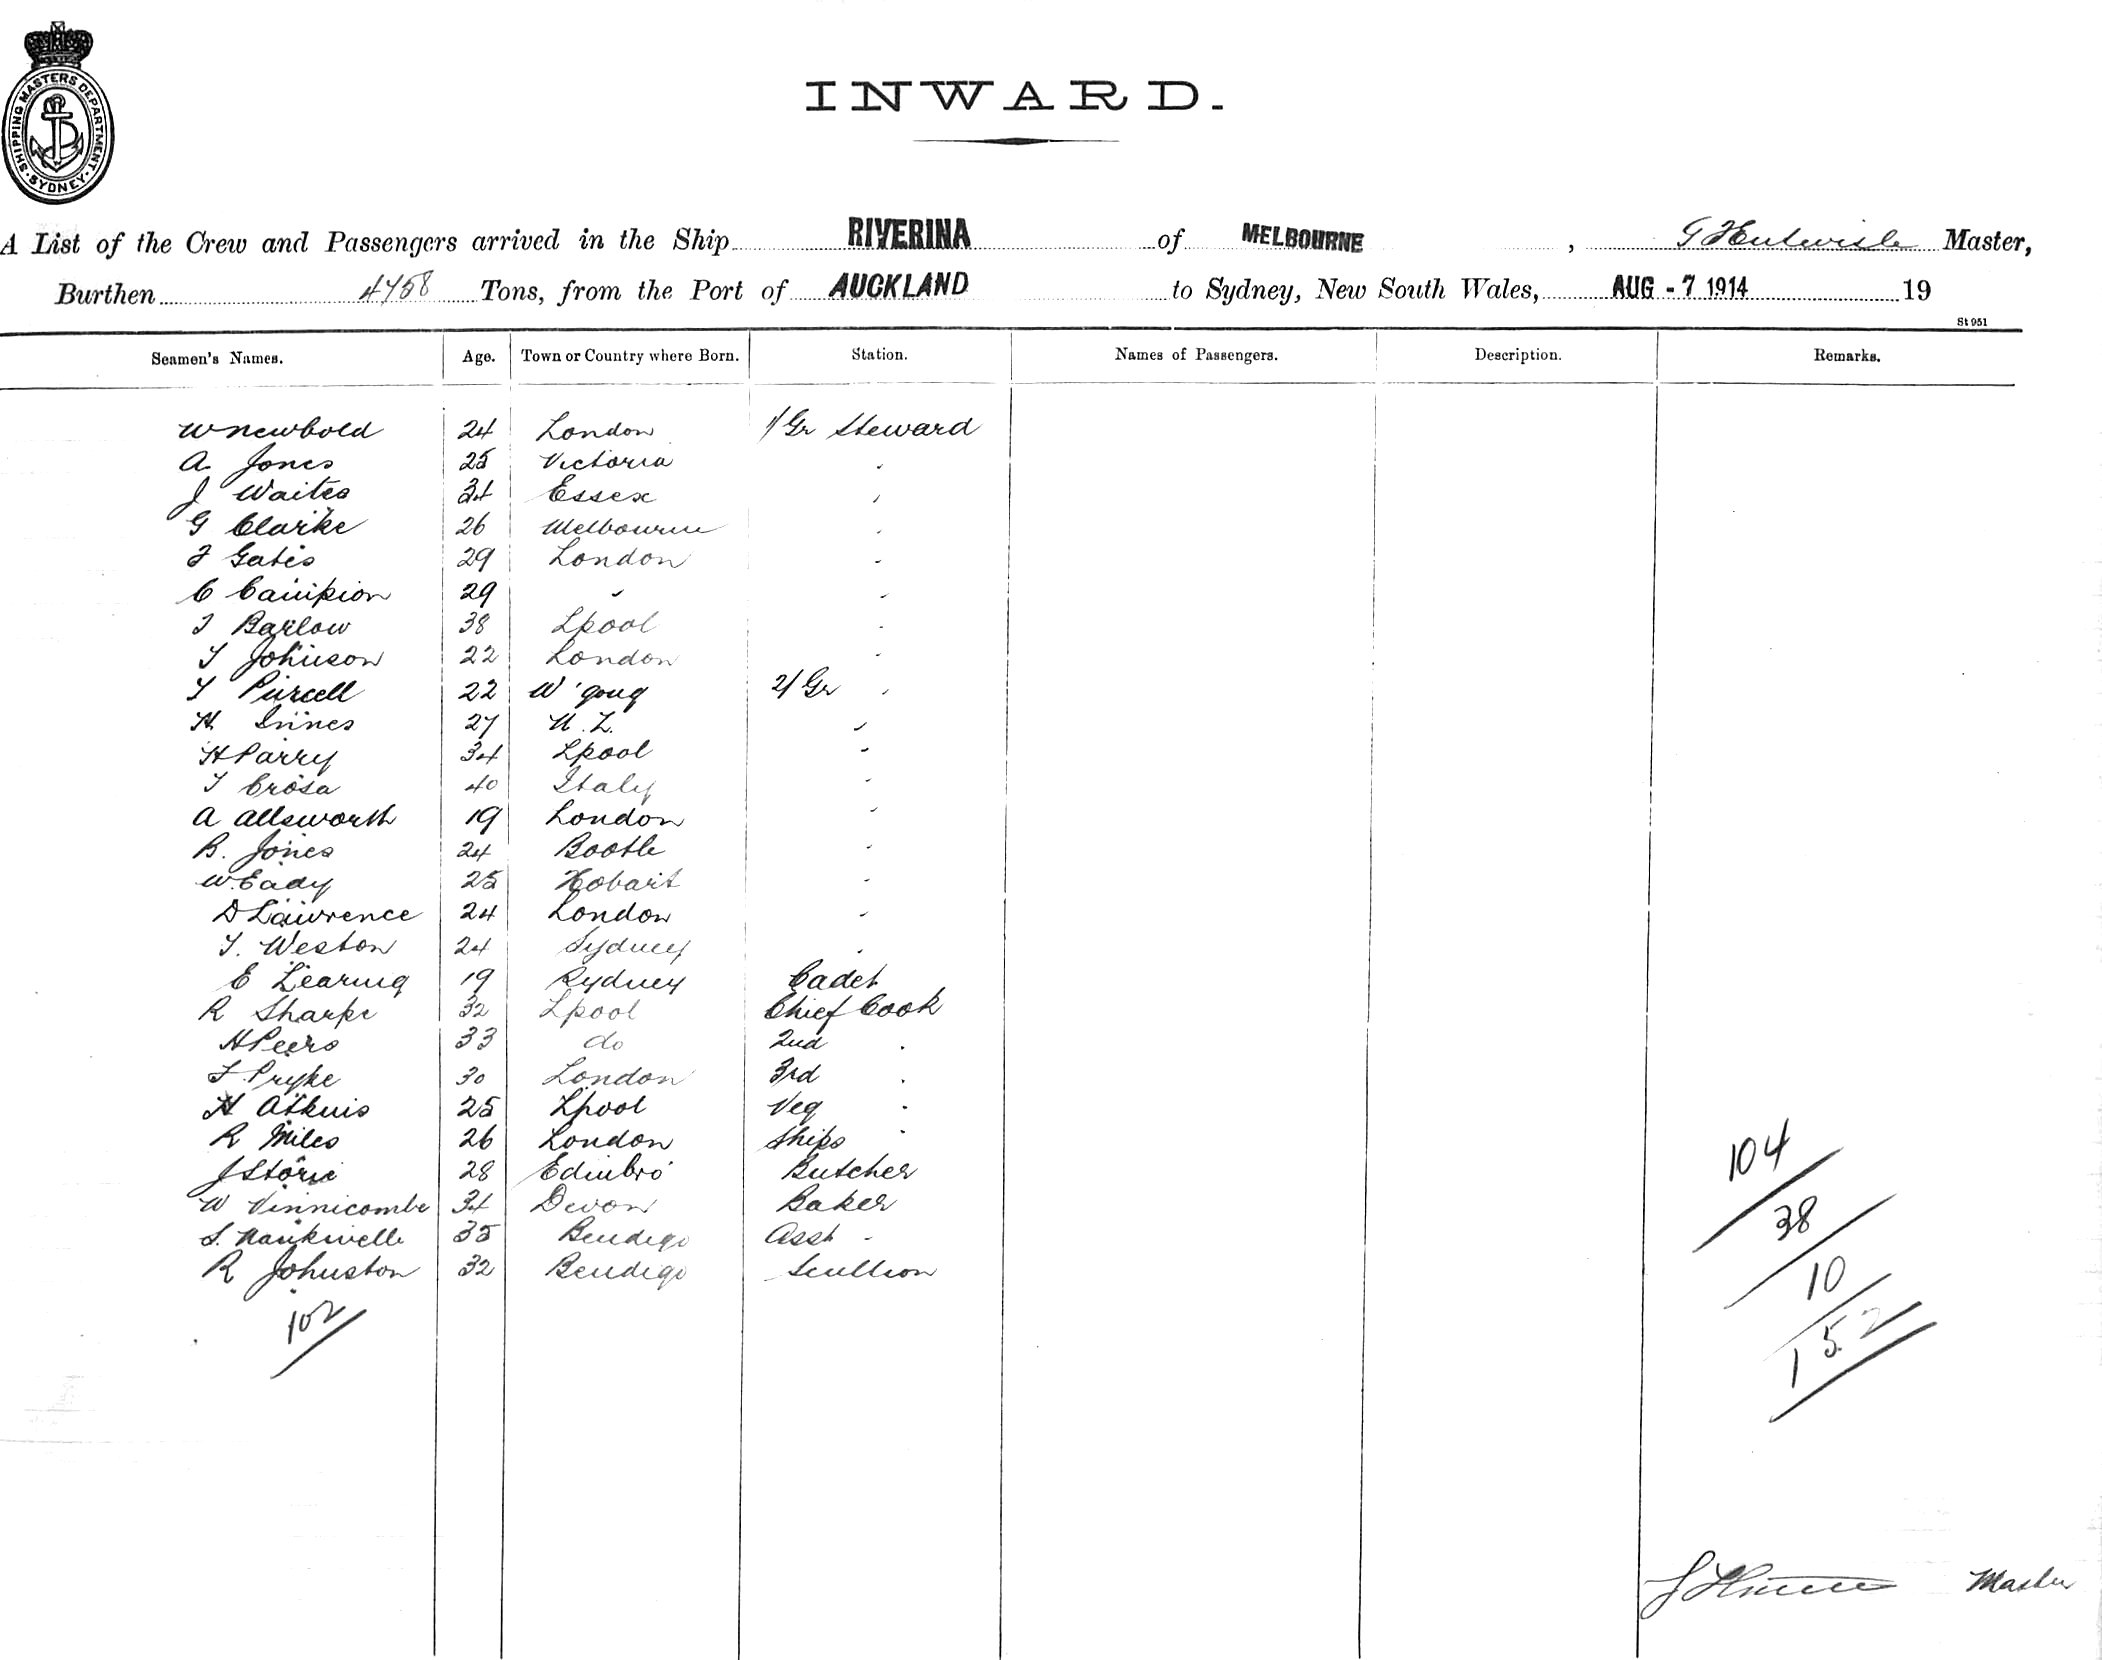 SHIPPING MASTERS DEPARTMENT. SYDNEY
INWARD.
A List of the Crew and Passengers arrived in the Ship RIVERINA of MELBOURNE, Master,
Burthen 4758 Tons, from the Port of AUCKLAND to Sydney, New South Wales, AUG - 7 1914 19
St 951
Seamen's Names. Age. Town or Country where Born. Station. Names of Passengers. Description. Remarks.
W Newbold 24 London 1/Gr Steward
A. Jones 25 Victoria "
J Waites 34 Essex "
G Clarke 26 Melbourne "
F Gates 29 London "
C Campion 29 " "
J Barlow 38 Lpool "
T Johnson 22 London "
T Purcell 22 W'gong 2/Gr "
H. Innes 27 N.Z. "
H Parry 34 Lpool "
T Crosa 40 Italy "
A Allsworth 19 London "
B. Jones 24 Bootle "
W. Eady 25 Hobart "
D Lawrence 24 London "
T. Weston 24 Sydney "
E Learing 19 Sydney Cadet
R Sharpe 32 Lpool Chief Cook
H Peers 33 do 2nd "
F. Pryke 30 London 3rd "
H Atkins 25 Lpool Veg "
R Miles 26 London Ships "
J Storie 28 Edinbro' Butcher
W Vinnicombe 34 Devon Baker
S. Nankivelle 35 Bendigo Asst "
R Johnston 32 Bendigo Scullion
102
104
38
10
152
Master